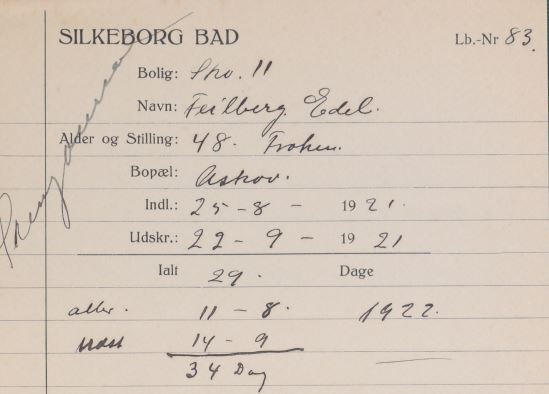 SILKEBORG BAD
Lb.-Nr 83.
Bolig: Sko. 11
Navn: Feilberg. Edel.
Alder og Stilling: 48. Frøken.
Bopæl: Askov.
Indl.: 25-8 - 1921.
Udskr.: 22-9 - 1921
Ialt 29. Dage
11-8. 1922.
14-9
34 Dag